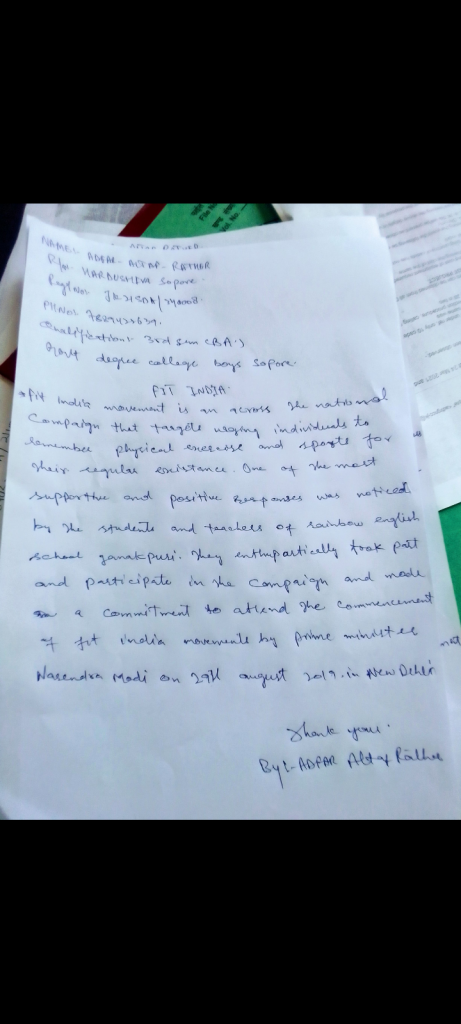 NAME:- ADFAR - ALTAF - RATHAR
R/o:- Sopore.
Regd No:
PH No: 
Qualification: 3rd Sem (BA.)
Govt degree college boys Sopore.
FIT INDIA.
Fit India movement is an across the national
Campaign that targets urging individuals to
remember physical exercise and sports for
their regular existance. One of the most
supportive and positive responses was noticed
by the students and teachers of rainbow english
school janakpuri. They took part
and participate in the Campaign and made
a commitment to attend the commencement
of fit india movements by prime minister
Narendra Modi on 29th august 2019. in New Delhi
Thank you.
By:- ADFAR Altaf Rather